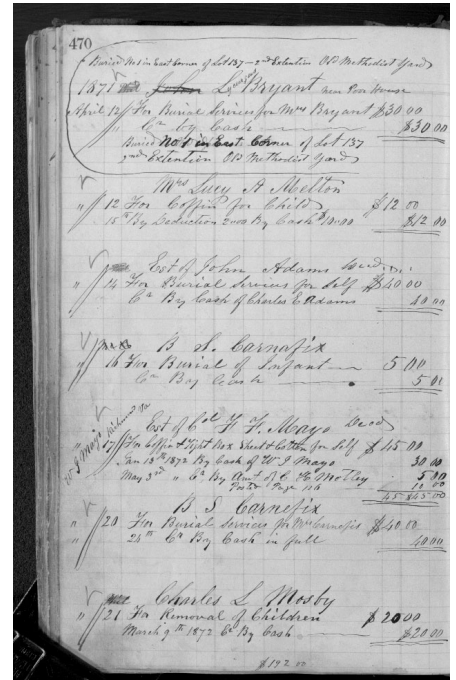 470
Buried No 1 in East Corner of Lot 137 - 2nd Extention Old Methodist Yard
1871 John L Bryant near Poor House
April 12 For Burial Services for Mrs Bryant $30 00
" Cr by Cash $30 00
Buried No 1 in East Corner of Lot 137
2nd Extention Old Methodist Yard
Mrs Lucy A Melton
" 12 For Coffin for Child $12 00
15th By Deduction 2.00 By Cash 10.00 $12 00
Est of John Adams Decd
" 14 For Burial Services for Self $40 00
Cr By Cash of Charles E Adams 40 00
B. S. Carnefix
" 16 For Burial of Infant 5 00
Cr By Cash 5 00
Est of Col F. F. Mayo Decd
W J Mayo Richmond Va
" 17 For Coffin & Tight Box & Cotton for Self $45 00
Jan 13th 1872 By Cash of W J Mayo 30 00
May 3rd " Cr By Amt of C Motley 5 00
Page 126
45 $45 00
B. S. Carnefix
" 20 For Burial Services for Mrs Carnefix $40 00
24th Cr By Cash in full 40 00
Charles L Mosby
" 21 For Removal of Children $20 00
March 9th 1872 Cr By Cash $20 00
$192 00